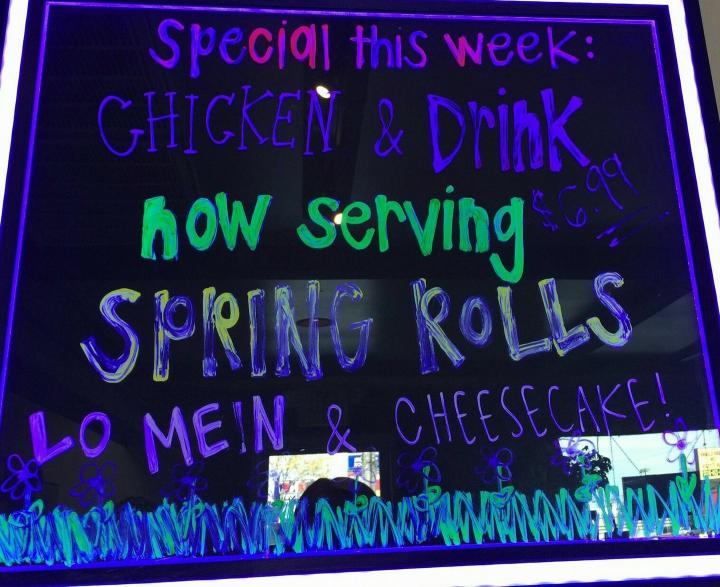 Special this week:
CHICKEN & Drink
$6.99
now serving
SPRING ROLLS
LO MEIN & CHEESECAKE!